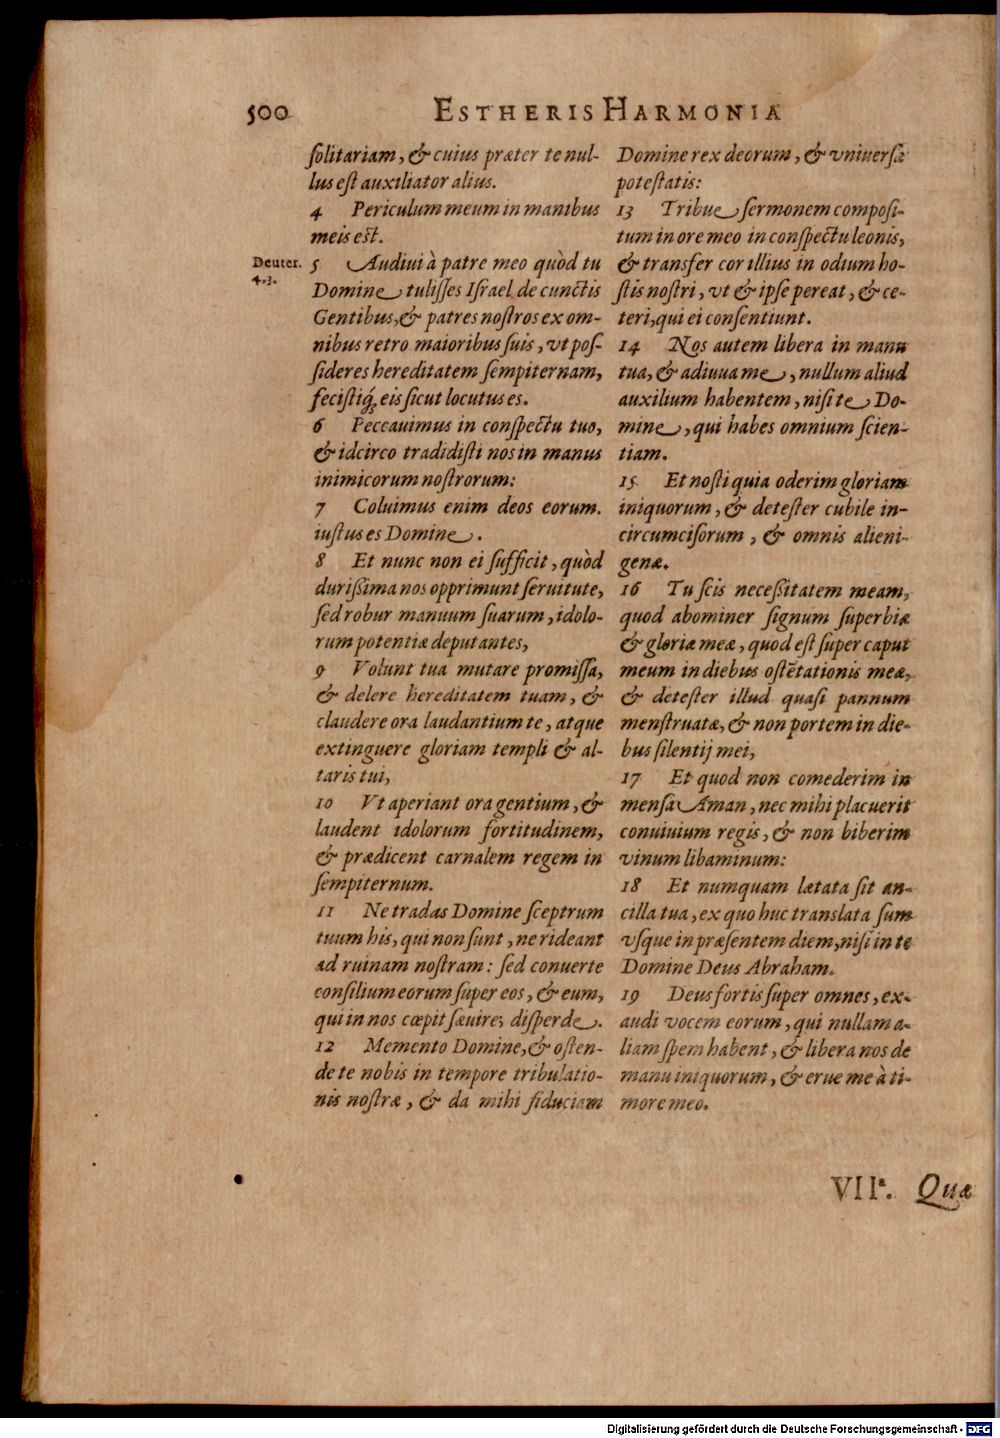 500
ESTHERIS HARMONIA
ſolitariam, & cuius præter te nul-
lus eſt auxiliator alius.
4 Periculum meum in manibus
meis eſt.
Deuter.
4.3.
5 Audiui à patre meo quòd tu
Domine tuliſſes Iſrael de cunctis
Gentibus, & patres noſtros ex om-
nibus retro maioribus ſuis, vt poſ-
ſideres hereditatem ſempiternam,
feciſtiq́; eis ſicut locutus es.
6 Peccauimus in conſpectu tuo,
& idcirco tradidiſti nos in manus
inimicorum noſtrorum:
7 Coluimus enim deos eorum.
iuſtus es Domine.
8 Et nunc non ei ſufficit, quòd
durißima nos opprimunt ſeruitute,
ſed robur manuum ſuarum, idolo-
rum potentiæ deputantes,
9 Volunt tua mutare promiſſa,
& delere hereditatem tuam, &
claudere ora laudantium te, atque
extinguere gloriam templi & al-
taris tui,
10 Vt aperiant ora gentium, &
laudent idolorum fortitudinem,
& prædicent carnalem regem in
ſempiternum.
11 Ne tradas Domine ſceptrum
tuum his, qui non ſunt, ne rideant
ad ruinam noſtram: ſed conuerte
conſilium eorum ſuper eos, & eum,
qui in nos cœpit ſæuire, diſperde.
12 Memento Domine, & oſten-
de te nobis in tempore tribulatio-
nis noſtræ, & da mihi fiduciam
Domine rex deorum, & vniuerſæ
poteſtatis:
13 Tribue ſermonem compoſi-
tum in ore meo in conſpectu leonis,
& transfer cor illius in odium ho-
ſtis noſtri, vt & ipſe pereat, & ce-
teri, qui ei conſentiunt.
14 Nos autem libera in manu
tua, & adiuua me, nullum aliud
auxilium habentem, niſi te Do-
mine, qui habes omnium ſcien-
tiam.
15 Et noſti quia oderim gloriam
iniquorum, & deteſter cubile in-
circumciſorum, & omnis alieni-
genæ.
16 Tu ſcis neceßitatem meam,
quod abominer ſignum ſuperbiæ
& gloriæ meæ, quod eſt ſuper caput
meum in diebus oſtẽtationis meæ,
& deteſter illud quaſi pannum
menſtruatæ, & non portem in die-
bus ſilentij mei,
17 Et quod non comederim in
menſa Aman, nec mihi placuerit
conuiuium regis, & non biberim
vinum libaminum:
18 Et numquam lætata ſit an-
cilla tua, ex quo huc translata ſum
vſque in præſentem diem, niſi in te
Domine Deus Abraham.
19 Deus fortis ſuper omnes, ex-
audi vocem eorum, qui nullam a-
liam ſpem habent, & libera nos de
manu iniquorum, & erue me à ti-
more meo.
VIIª. Quæ
Digitalisierung gefördert durch die Deutsche Forschungsgemeinschaft - DFG